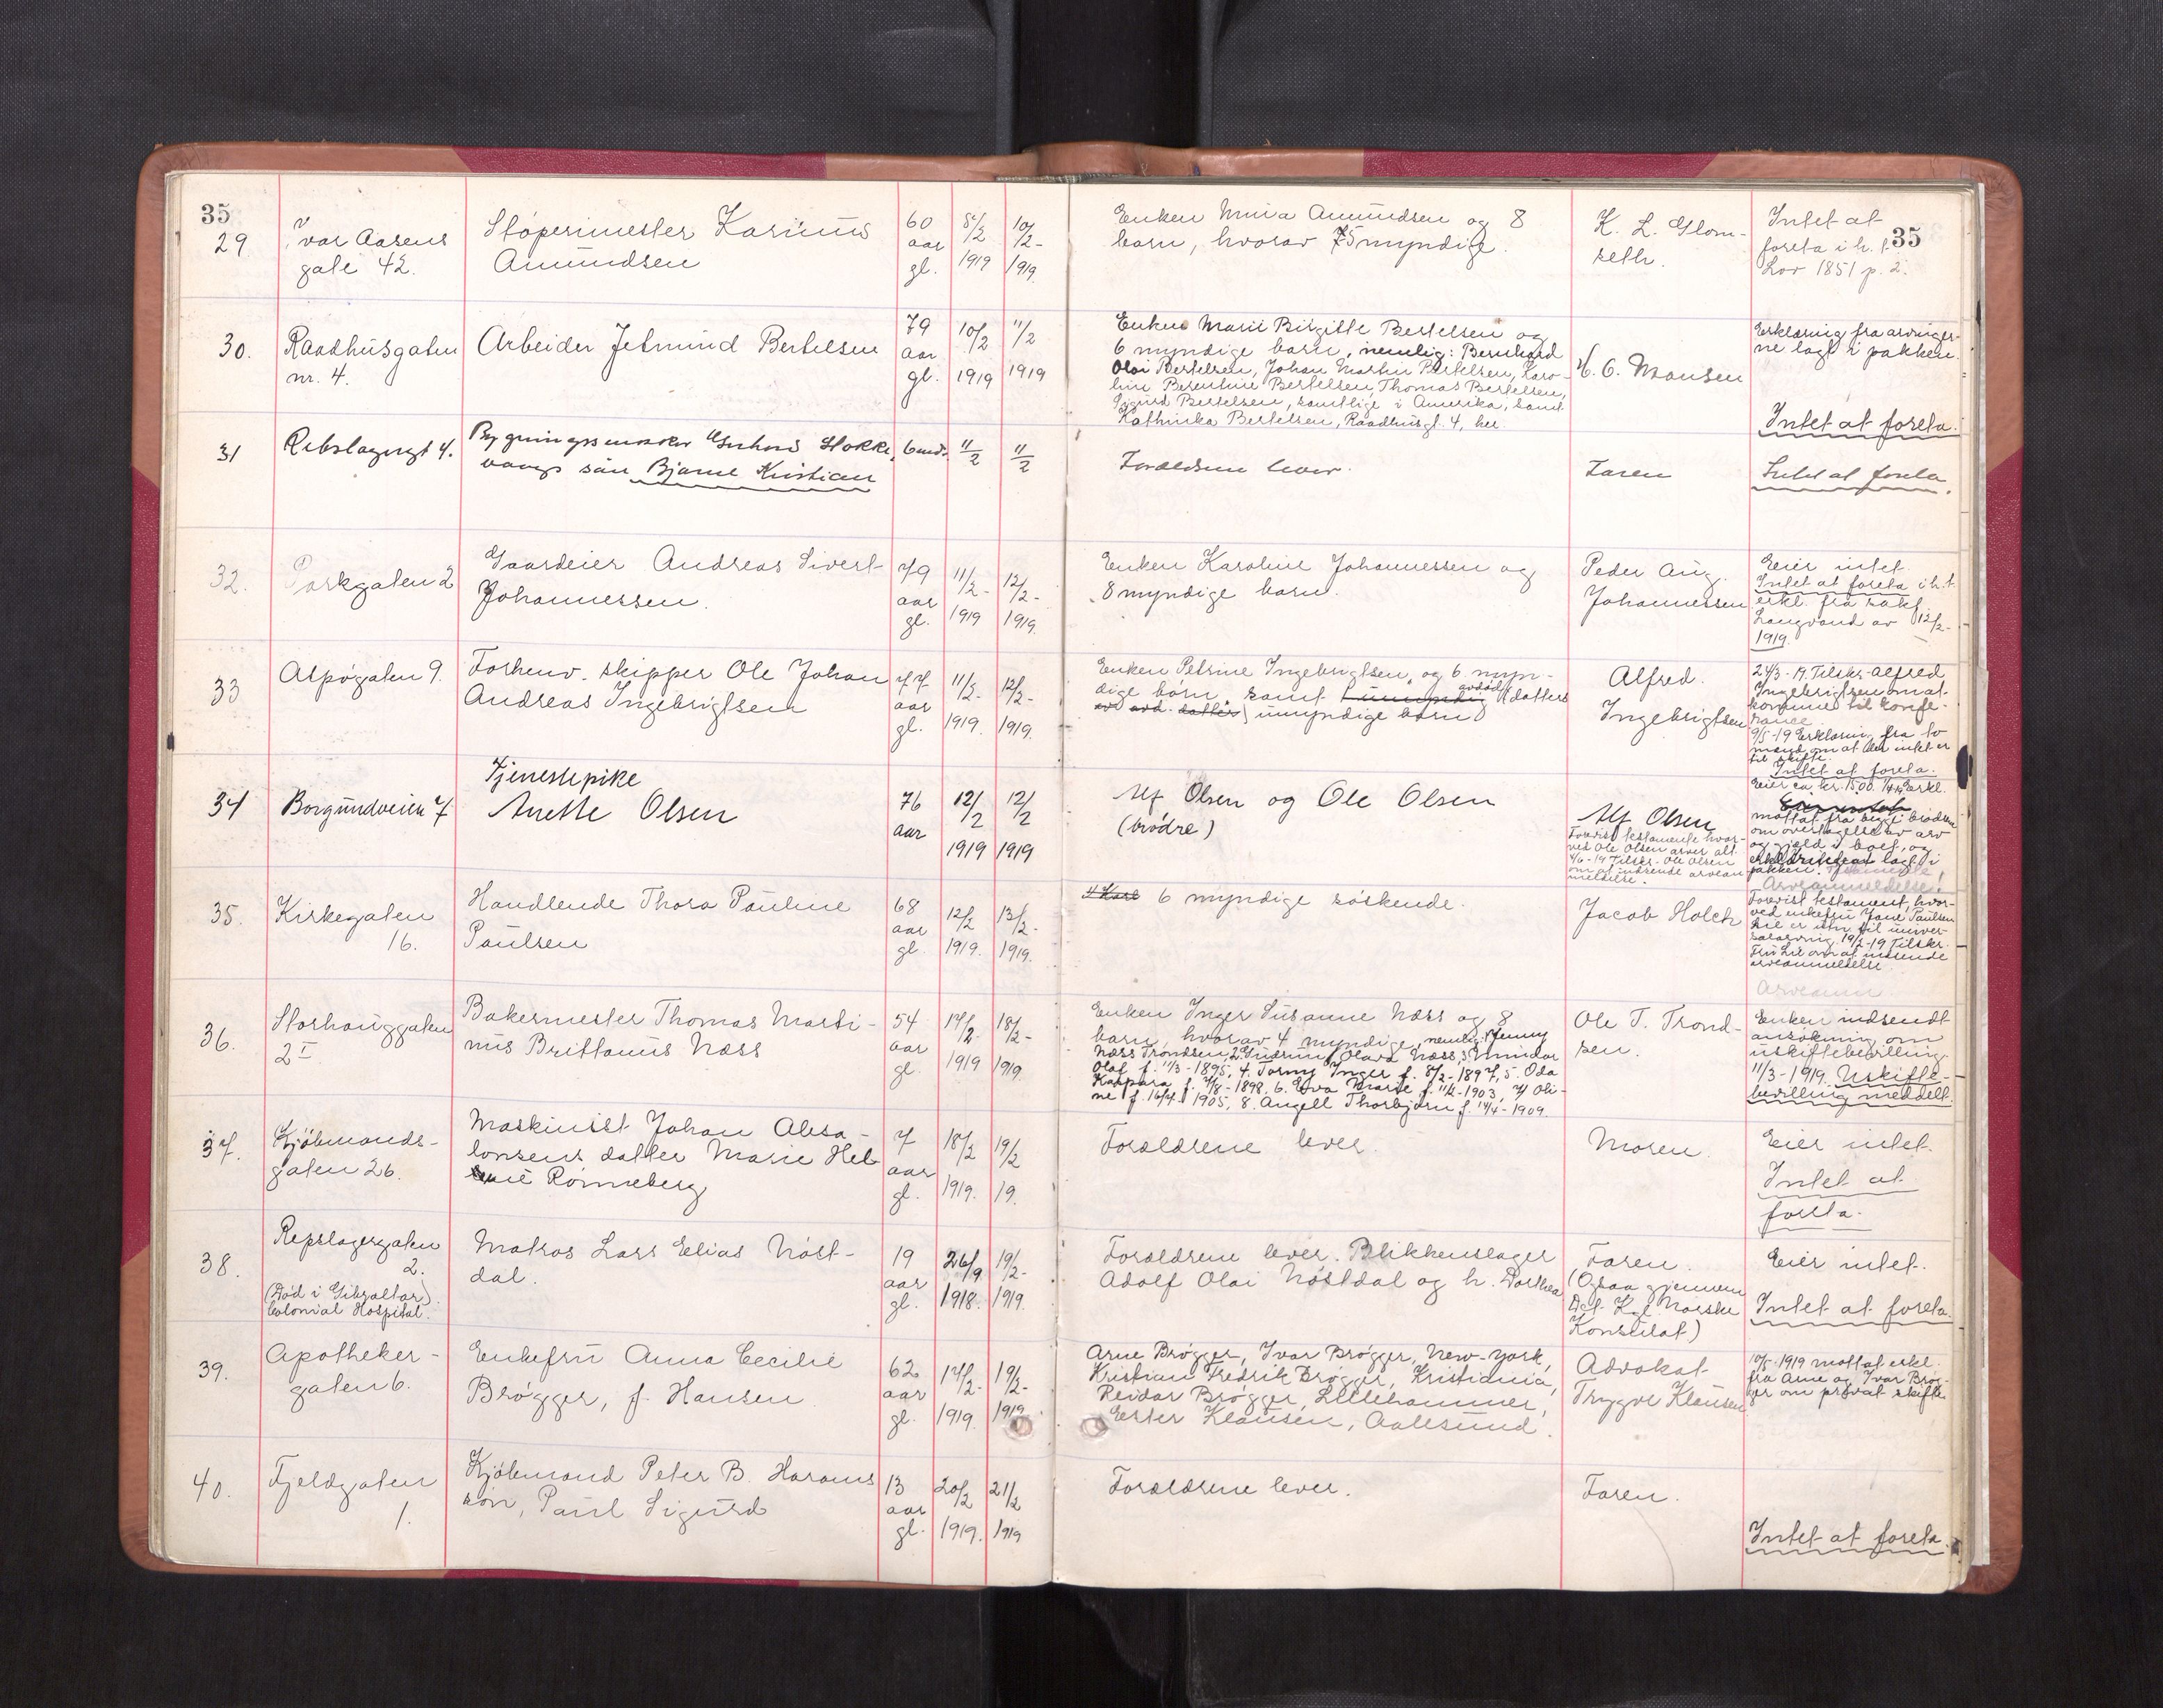 35
35
29
Ivar Aasens
gate 42.
Støperimester Karinus
Amundsen
60
aar
gl.
8/2
1919
10/2-
1919.
Enken Mina Amundsen og 8
barn, hvorav 5 myndige.
K. L. Glom-
seth.
Intet at
foreta i h. t.
Lov 1851 p. 2.
30.
Raadhusgaten
nr. 4.
Arbeider Jetmund Bertelsen
79
aar
gl.
10/2
1919
11/2
1919
Enken Marie Birgitte Bertelsen og
6 myndige barn, nemlig: Bernhard
Olai Bertelsen, Johan Martin Bertelsen, Karo-
line Berentine Bertelsen, Thomas Bertelsen,
Sigurd Bertelsen, samtlige i Amerika, samt
Kathinka Bertelsen, Raadhusgt. 4, her
C. Monsen
Erklæring fra arvinger-
ne lagt i pakken.
Intet at foreta.
31
Rebslagergt 4.
Bygningssnekker
vangs søn Bjarne Kristian
6 mdr.
11/2
11/2
Forældrene lever.
Faren
Intet at foreta.
32.
Parkgaten 2
Gaardeier Andreas Sivert
Johannessen.
79
aar
gl.
11/2-
1919
12/2-
1919.
Enken Karoline Johannessen og
8 myndige barn.
Peder Aug.
Johannessen
Eier intet.
Intet at foreta i h. t.
erkl. fra sakf.
Langvand av 12/2-
1919.
33
Aspøgaten 9.
Forhenv. skipper Ole Johan
Andreas Ingebrigtsen
77
aar
gl.
11/2-
1919.
12/2-
1919.
Enken Petrine Ingebrigtsen, og 6 myn-
dige barn, samt 1 umyndig (avdød datters
av avd. datters) umyndige barn
Alfred.
Ingebrigtsen
24/3-19. Tilskr. Alfred
Ingebrigtsen om at
komme til konfe-
ranse.
9/5-19 Erklæring fra to
mænd om at der intet er
til skifte.
Intet at foreta.
34
Borgundveien 7
Tjenestepike
Anette Olsen
76
aar
12/2
1919
12/2
1919
Alf Olsen og Ole Olsen
(brødre)
Alf Olsen
Forevist testamente hvor-
ved Ole Olsen arver alt
4/6-19 Tilskr. Ole Olsen
om at indsende arvean
meldelse.
Eier ca. kr. 1500. Erkl.
Eier intet
mottat fra begge brødre
om overtagelse av arv
og gjæld i boet, og
lagt i
pakken.
Arveanmeldelse.
35.
Kirkegaten
16.
Handlende Thora Pauline
Paulsen
68
aar
gl.
12/2
1919.
13/2-
1919.
6 myndige søskende.
Jacob Holck
Forevist testament, hvor-
ved enkefru Jane Paulsen
Lie er indsat til univer-
salarving. 19/2-19 Tilskr.
Fru Lie om at indsende
arveanmeldelse.
Arveanm
36.
Storhauggaten
2 I
Bakermester Thomas Marti-
nus Brittanus Næss
54
aar
gl.
17/2
1919
18/2-
1919.
Enken Inger Susanne Næss og 8
barn, hvorav 4 myndige, nemlig: 1. Jenny
Næss Trondsen, 2. Gudrun Olava Næss, 3. Einnar
Olaf f. 11/3-1895, 4. Torny Inger f. 8/2-1897, 5. Oda
Kaspara f. 7/8-1898, 6. Eva Marie f. 11/2-1903, 7 Oli-
ne f. 16/4 1905, 8. Angell Thorbjørn f. 14/4-1909.
Ole T. Trond-
sen.
Enken indsendt
ansøkning om
uskiftebevilling.
11/3-1919. Uskifte-
bevilling meddelt.
37.
Kjøbmands-
gaten 26.
Maskinist Johan Absa-
lonsens datter Marie Hel
ene Rønneberg
7
aar
gl.
18/2
1919.
19/2
19.
Forældrene lever.
Moren.
Eier intet.
Intet at
foreta.
38.
Repslagergaten
2.
(Død i Gibraltar)
Colonial Hospital.
Matros Lars Elias Nøst-
dal.
19
aar
gl.
26/9
1918.
19/2-
1919.
Forældrene lever. Blikkenslager
Adolf Olai Nøstdal og h. Dorthea
Faren.
(Ogsaa gjennem
Det Kgl. Norske
Konsulat)
Eier intet.
Intet at foreta.
39.
Apotheker-
gaten 6.
Enkefru Anna Cecilie
Brøgger, f. Hansen
62
aar
gl.
17/2-
1919.
19/2-
1919
Arne Brøgger, Ivar Brøgger, New-York,
Kristian Fredrik Brøgger, Kristiania,
Reidar Brøgger, Lillehammer,
Ester Klausen, Aalesund.
Advokat
Trygve Klausen
10/5-1919 mottat erkl.
fra Arne og Ivar Brøg-
ger om privat skifte
40.
Fjeldgaten
1.
Kjøbmand Peter B. Harams
søn, Paul Sigurd
13
aar
gl.
20/2
1919.
21/2
1919
Forældrene lever.
Faren.
Intet at foreta.